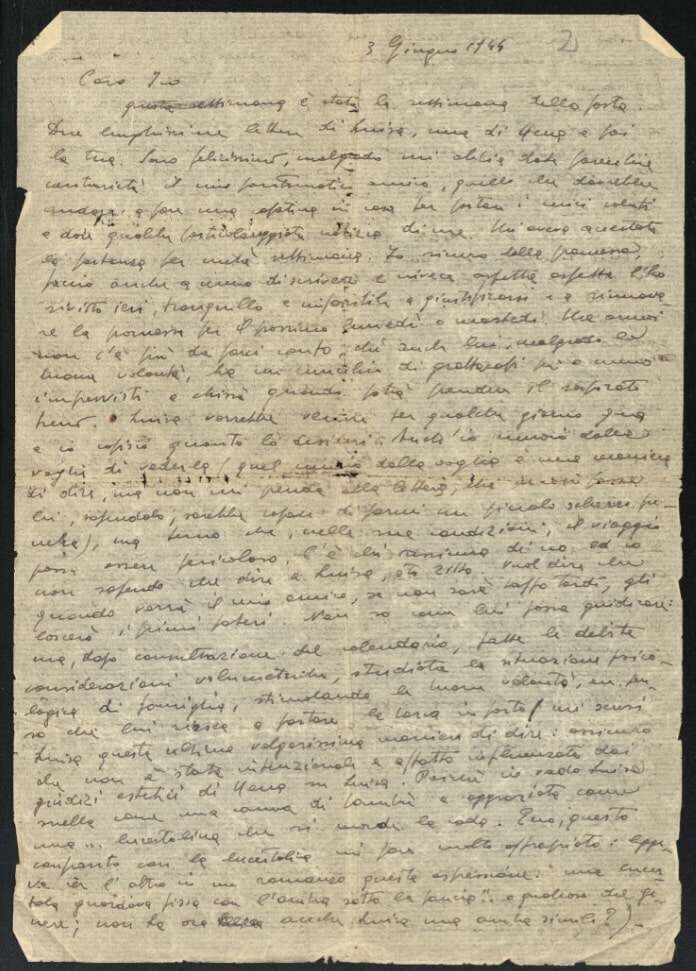 3 Giugno 1944 2
Caro Ivo
questa settimana è stata la settimana della posta.
Due lunghissime lettere di Luisa, una di Mena e poi
la tua. Sono felicissimo, malgrado mi abbia dato parecchie
contrarietà il mio fantomatico amico, quello che dovrebbe
andare a fare una capatina in casa per portare i miei saluti
e dare qualche notizia di me. Mi aveva accertata
la partenza per metà settimana. Io sicuro della promessa,
faccio anche a meno di scrivere e invece aspetta aspetta l'ho
rivisto ieri, tranquillo e a giustificarsi e a rinnova-
re la promessa per il prossimo lunedì o martedì. Ma ormai
non c'è più da farci conto, chè anche lui, malgrado la
buona volontà, ha un di grattacapi più o meno
imprevisti e chissà quando potrà prendere il sospirato
treno. Luisa vorrebbe venire per qualche giorno qua
e io capisco quanto lo desideri. Anch'io muoio dalla
voglia di vederla (quel muoio dalla voglia è una maniera
di dire, ma non mi prenda alla lettera,
lui, sapendolo, sarebbe capace di farmi un piccolo scherzo
), ma temo che, nelle sue condizioni, il viaggio
possa essere pericoloso. C'è chi rassicura di no, ed io
non sapendo che dire a Luisa, sto zitto. Vuol dire che
quando verrà il mio amico, se non sarà troppo tardi, gli
lascerò i pieni poteri. Non so come lui possa giudicare:
ma, dopo consultazione del calendario, fatte le debite
considerazioni volumetriche, studiata la situazione psico-
logica di famiglia, stimolando la buona volontà,
so che lui riesca a portare la barca in porto (mi scusi
Luisa questa ultima volgarissima maniera di dire: assicuro
che non è stata intenzionale e affatto influenzata dai
giudizi estetici di Mena su Luisa. Perchè io vedo Luisa
snella come una canna di bambù e aggraziata come
una... lucertolina che si morde la coda. Ecco, questo
confronto con la lucertolina mi pare molto appropriato: legge-
vo ier l'altro in un romanzo questa espressione: "una lucer-
tola guardava fissa con l'ombra sotto la pancia" o qualcosa del ge-
nere; non ha ora anche Luisa una ombra simile?).